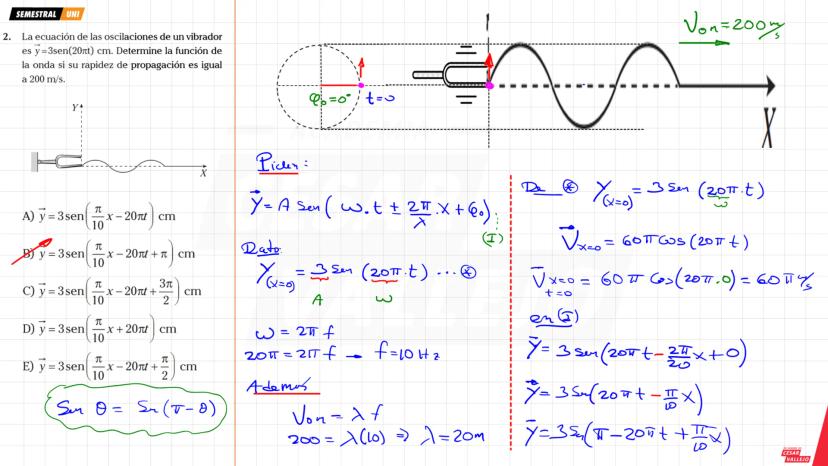 SEMESTRAL UNI
2. La ecuación de las oscilaciones de un vibrador
es y⃗=3sen(20πt) cm. Determine la función de
la onda si su rapidez de propagación es igual
a 200 m/s.
Y
X
A) y⃗ = 3sen(π/10 x − 20πt) cm
B) y⃗ = 3sen(π/10 x − 20πt + π) cm
C) y⃗ = 3sen(π/10 x − 20πt + 3π/2) cm
D) y⃗ = 3sen(π/10 x + 20πt) cm
E) y⃗ = 3sen(π/10 x − 20πt + π/2) cm
Sen θ = Sen (π − θ)
V₀ₙ = 200 m/s
φ₀ = 0° t = 0
X
Piden:
Y⃗ = A Sen ( ω.t ± 2π/λ .x + φ₀)
(I)
Dato
Y(x=0) = 3 Sen (20π.t) ... ⊛
A ω
ω = 2π f
20π = 2π f → f = 10 Hz
Además
V₀ₙ = λ f
200 = λ(10) ⇒ λ = 20m
De ⊛ Y(x=0) = 3 Sen (20π.t)
ω
V⃗x=0 = 60π cos (20πt)
V⃗x=0 t=0 = 60π Cos(20π.0) = 60π m/s
en (I)
Y⃗ = 3 Sen(20πt − 2π/20 x + 0)
Y⃗ = 3 Sen(20πt − π/10 x)
Y⃗ = 3 Sen(π − 20πt + π/10 x)
ACADEMIA
CESAR
VALLEJO